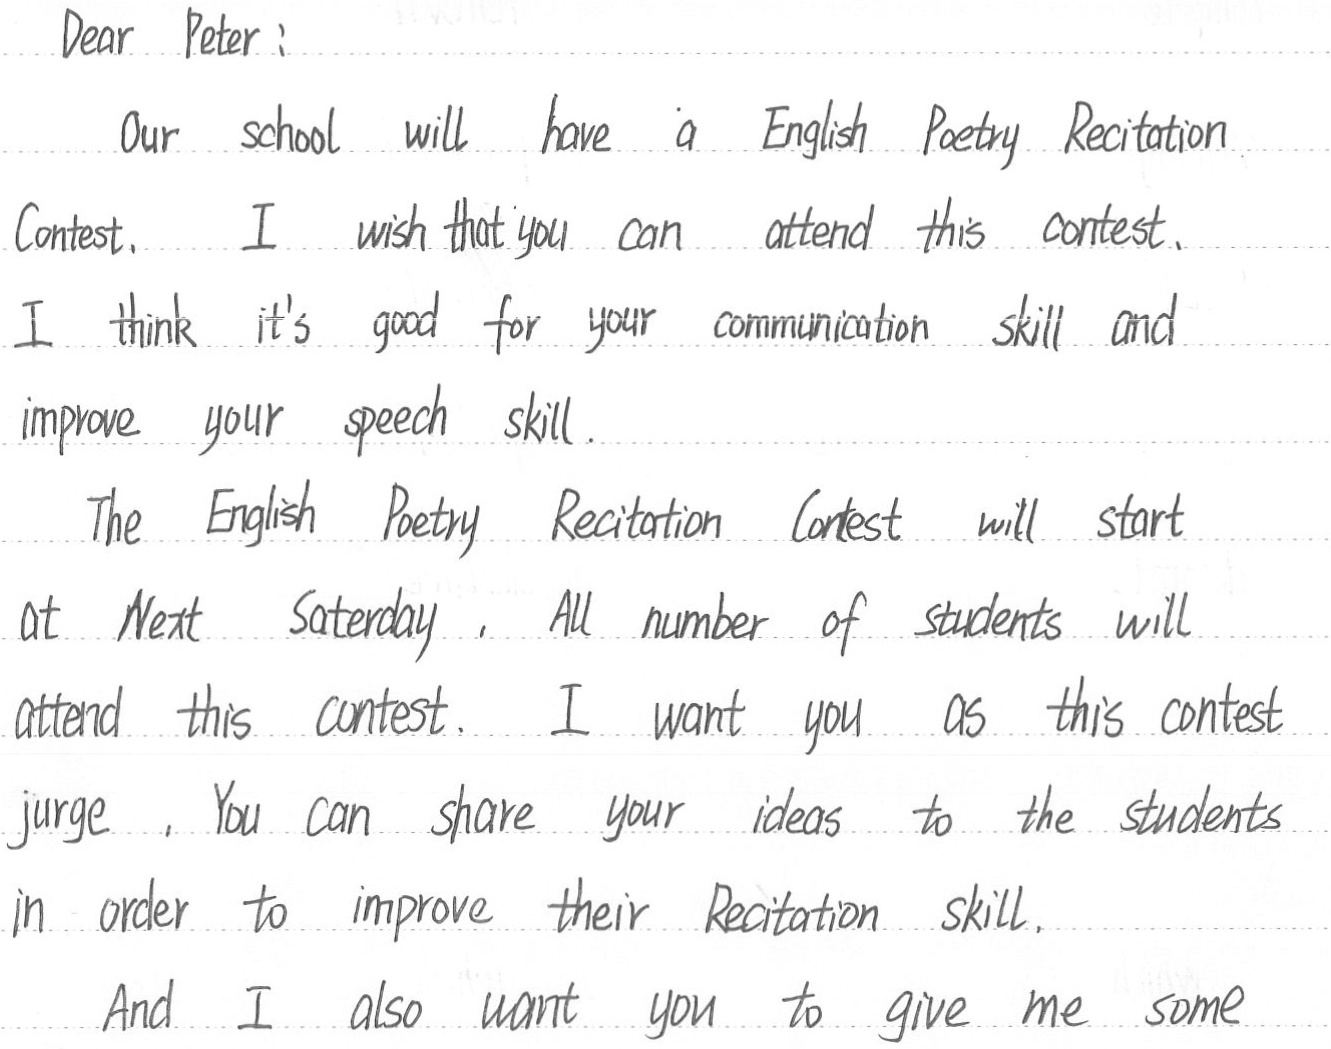 Dear Peter:
Our school will have a English Poetry Recitation
Contest. I wish that you can attend this contest.
I think it's good for your communication skill and
improve your speech skill.
The English Poetry Recitation Contest will start
at Next Saterday. All number of students will
attend this contest. I want you as this contest
jurge. You can share your ideas to the students
in order to improve their Recitation skill.
And I also want you to give me some